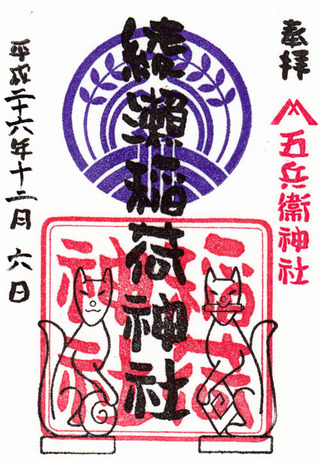 奉拝
五兵衛神社
綾瀬稲荷神社
稲荷
神社
平成二十六年十二月 六日